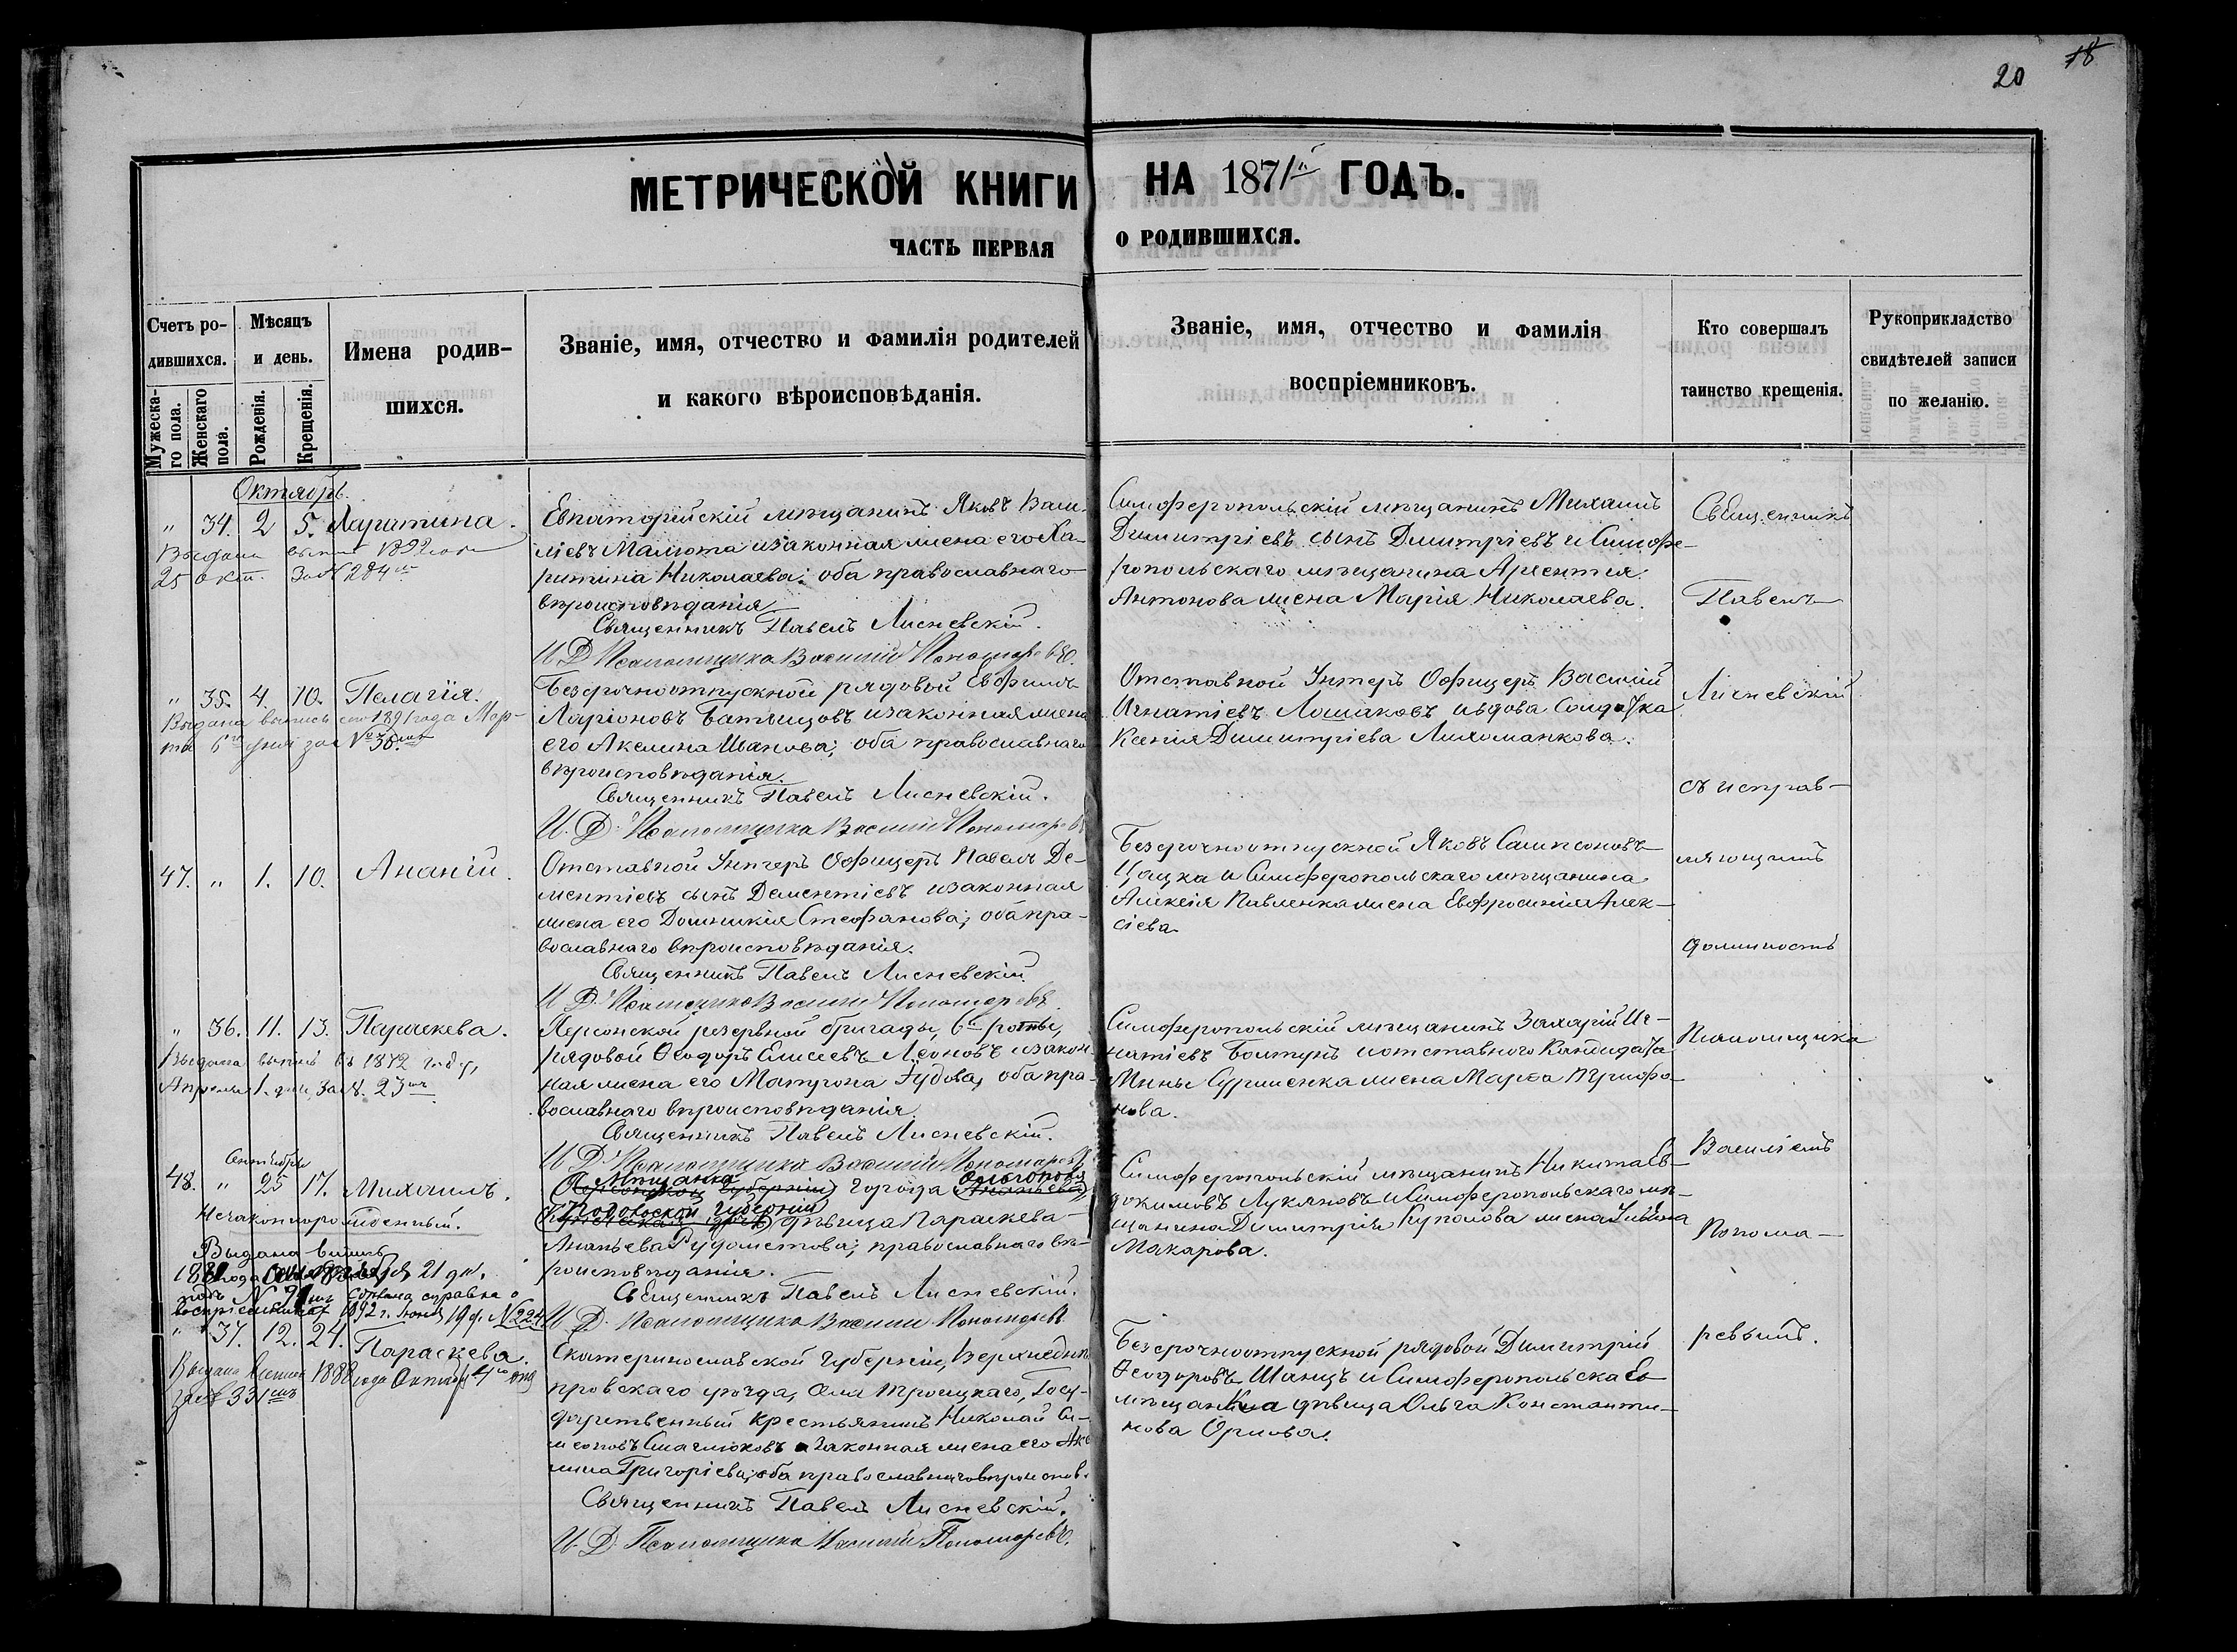 18
20
МЕТРИЧЕСКОЙ КНИГИ НА 1871й ГОДЪ.
ЧАСТЬ ПЕРВАЯ О РОДИВШИХСЯ.
Счетъ родившихся.
Мужескаго пола.
Женскаго пола.
Мѣсяцъ и день.
Рожденія.
Крещенія.
Имена родившихся.
Званіе, имя, отчество и фамилія родителей
и какого вѣроисповѣданія.
Званіе, имя, отчество и фамилія
воспріемниковъ.
Кто совершалъ
таинство крещенія.
Рукоприкладство
свидѣтелей записи
по желанію.
Октябрь.
" 34. 2 5. Харитина.
Выдана выпись 1892 года
25 окт. за № 284
Евпаторійскій мѣщанинъ Яковъ Васи-
ліевъ Малюта и законная жена его Ха-
ритина Николаева; оба православнаго
вѣроисповѣданія.
Священникъ Павелъ Лисневскій.
И. Д. Псаломщика Василій Пономаревъ.
Симферопольскій мѣщанинъ Михаилъ
Димитріевъ сынъ Димитріевъ и Симфе-
ропольскаго мѣщанина Арсентія
Антонова жена Марія Николаева.
" 35. 4. 10. Пелагія.
Выдана выпись 1891 года Мар-
та 6го дня за № 36.
Безсрочноотпускной рядовой Евфимъ
Ларіоновъ Батыщовъ и законная жена
его Акелина Иванова; оба православнаго
вѣроисповѣданія.
Священникъ Павелъ Лисневскій.
И. Д. Псаломщика Василій Пономаревъ
Отставной Унтеръ Офицеръ Василій
Игнатіевъ Лошаковъ и вдова Солдатка
Ксенія Димитріева Лихоманкова.
47. " 1. 10. Ананій.
Отставной Унтеръ Офицеръ Павелъ Де-
ментіевъ сынъ Дементіевъ и законная
жена его Домникія Стефанова; оба пра-
вославнаго вѣроисповѣданія.
Священникъ Павелъ Лисневскій.
И. Д. Псаломщика Василій Пономаревъ.
Безсрочноотпускной Яковъ Сампсоновъ
Цоцка и Симферопольскаго мѣщанина
Алексія Павленка жена Евфросинія Алек-
сіева.
" 36. 11. 13. Параскева.
Выдана выпись въ 1872 году,
Апрѣля 1. дня, за №. 23
Херсонской резервной бригады, 6й роты,
рядовой Ѳеодоръ Елисеевъ Леоновъ и закон-
ная жена его Матрона Іудова; оба пра-
вославнаго вѣроисповѣданія.
Священникъ Павелъ Лисневскій.
И. Д. Псаломщика Василій Пономаревъ
Симферопольскій мѣщанинъ Захарій Иг-
натіевъ Болтунъ и отставного Кандидата
Мины Сурженка жена Марѳа Трифо-
нова.
Сентября
48. " 25 17. Михаилъ.
Незаконнорожденный.
Выдана выпись
21 дн.
воспріемникахъ 1892 г. Іюня 19 д. № 224.
Мѣщанка Ольгополя
(Херсонской Губерніи) города (Ананьева)
Подольской губерніи
дѣвица Параскева
Ананьева Рудометова; православнаго вѣ-
роисповѣданія.
Священникъ Павелъ Лисневскій.
И. Д. Псаломщика Василій Пономаревъ
Симферопольскій мѣщанинъ Никита Ев-
докимовъ Лукяновъ и Симферопольскаго мѣ-
щанина Димитрія Куполова жена Ульяна
Макарова.
" 37. 12. 24. Параскева.
Выдана выпись 1888 года Октяб. 4го дня
за № 331
Екатеринославской Губерніи, Верхнеднѣ-
провскаго уѣзда, села Троицкаго, Госу-
дарственный крестьянинъ Николай Си-
меоновъ Смаглюковъ и законная жена его Аке-
лина Григоріева; оба православнаго вѣроисповѣ.
Священникъ Павелъ Лисневскій.
И. Д. Псаломщика Василій Пономаревъ.
Безсрочноотпускной рядовой Димитрій
Ѳеодоровъ Шанцъ и Симферопольская
мѣщанка дѣвица Ольга Константи-
нова Орлова.
Священникъ
Павелъ
Лисневскій
съ исправ-
ляющимъ
должность
Псаломщика
Василіемъ
Понома-
ревымъ.